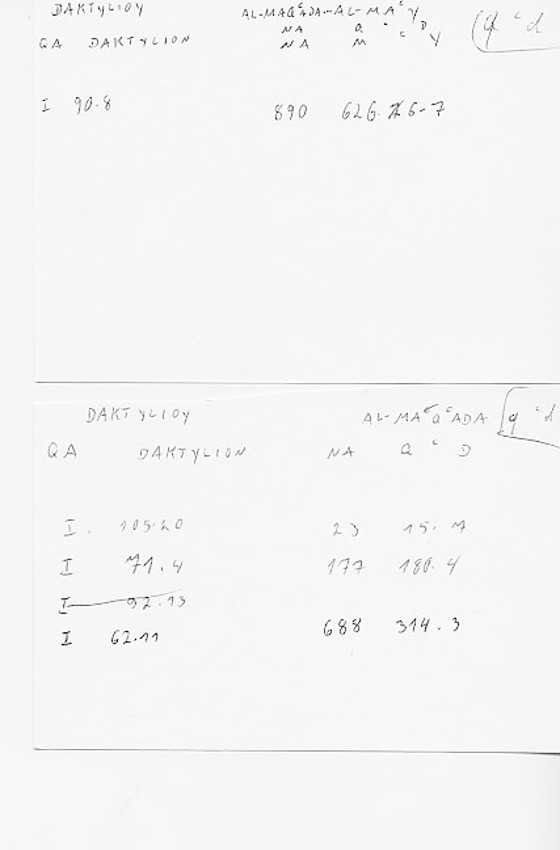 DAKTYLIOY AL-MAQᶜADA--AL-MAᶜY
NA Q . D
QA DAKTYLION NA M ᶜ Y (q ᶜ d
I 90.8 890 626. 6-7
DAKTYLIOY AL-MAQᶜADA q ᶜ d
QA DAKTYLION NA Q ᶜ D
I . 105.20 23 15.
I 71.4 177 180.4
I 92.13
I 62.11 688 314.3